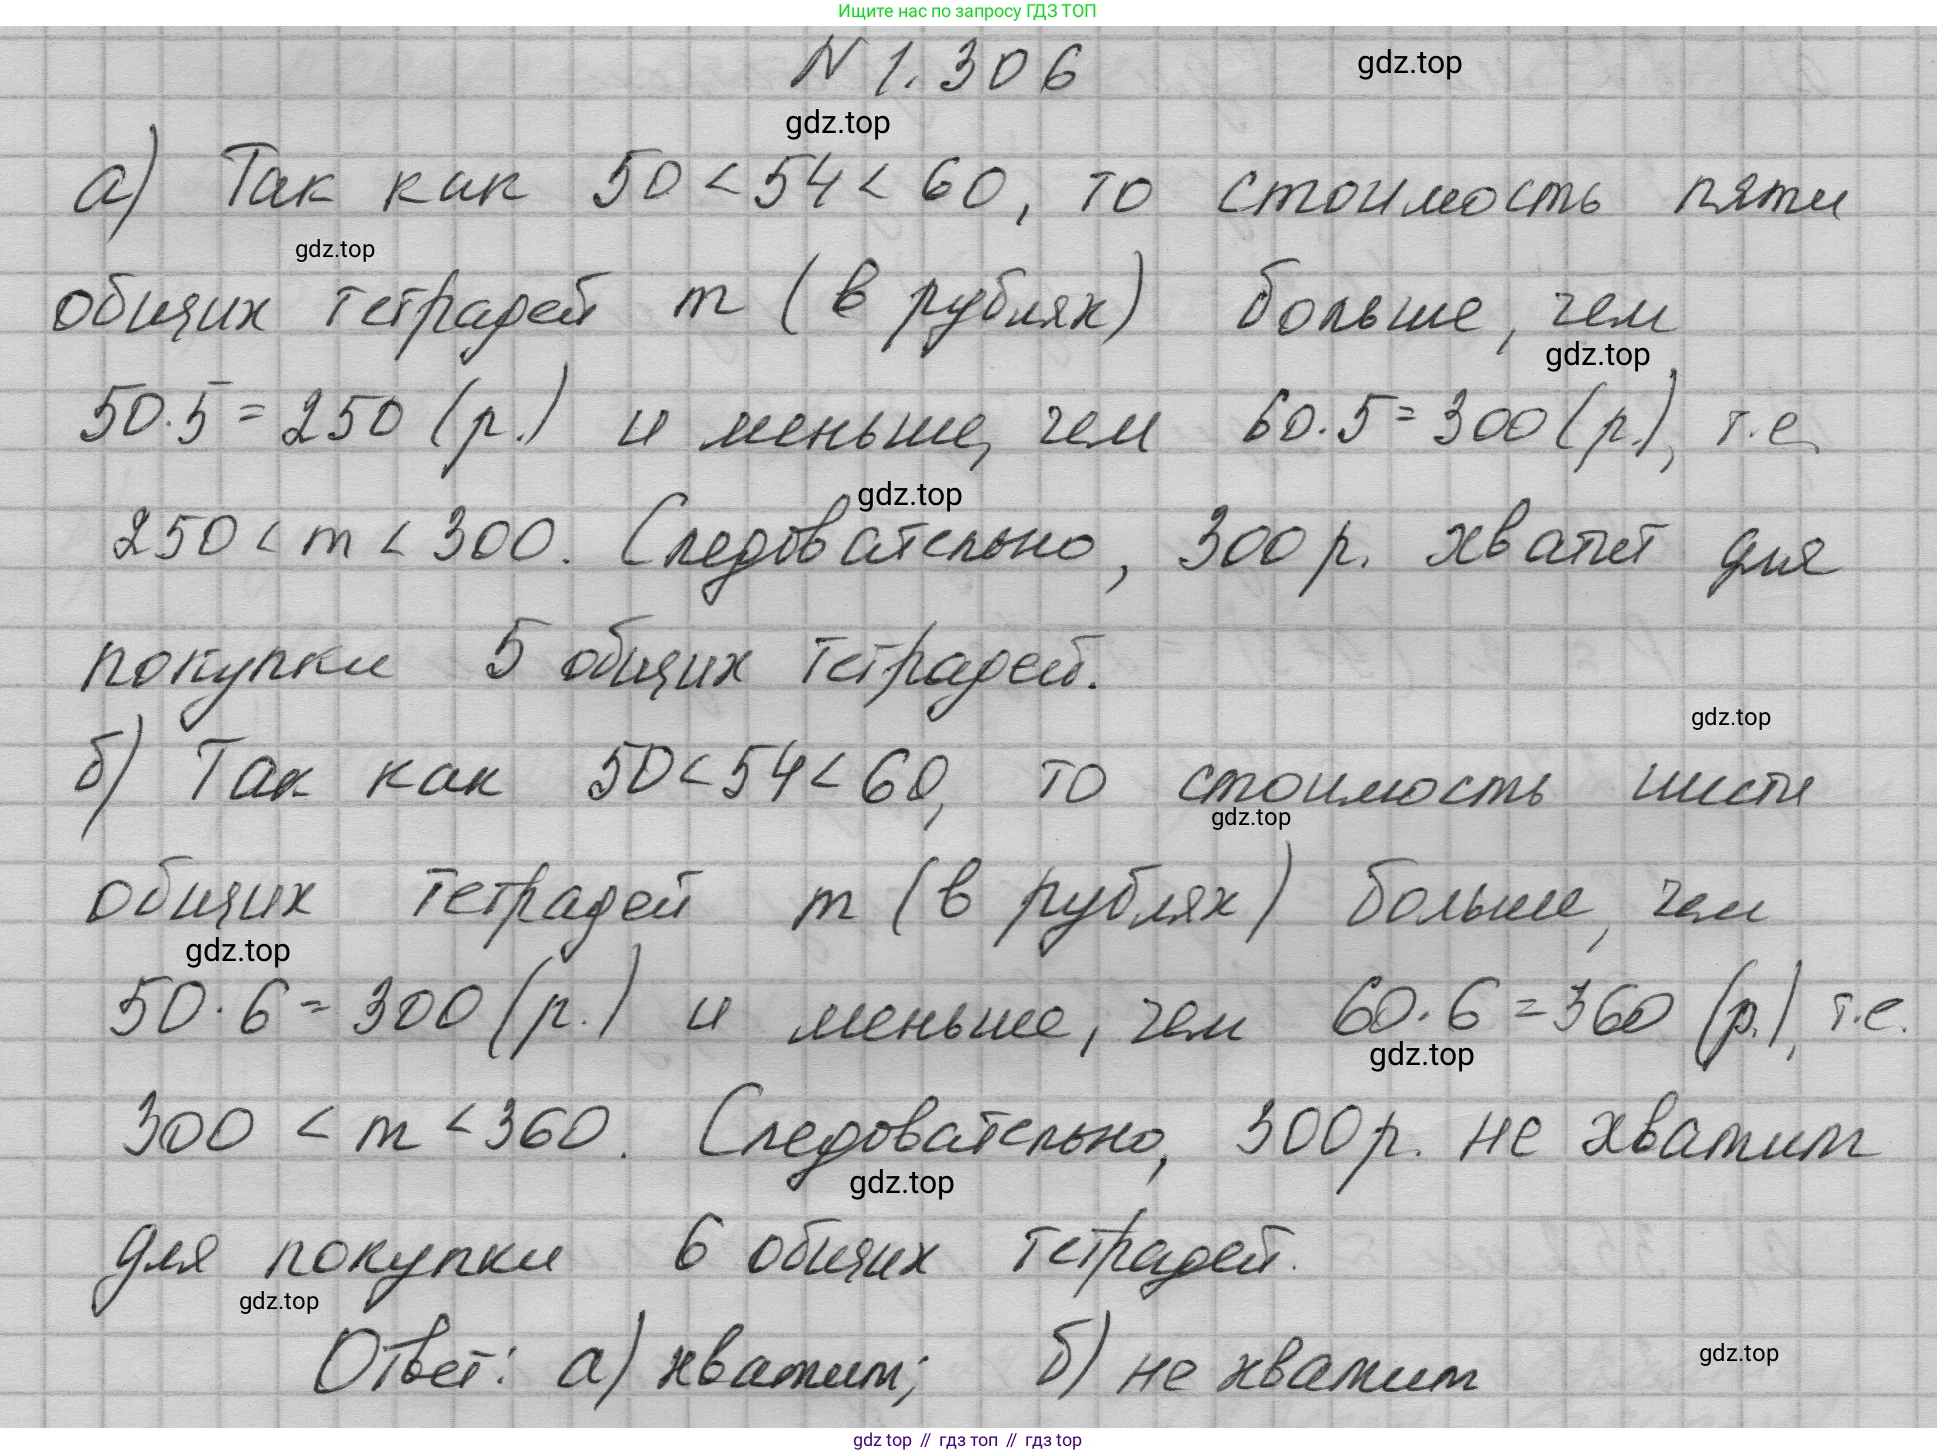 Ищите нас по запросу ГДЗ ТОП
N 1.306
gdz.top
gdz.top
а) Так как 50 < 54 < 60, то стоимость пяти
gdz.top
общих тетрадей m (в рублях) больше, чем
gdz.top
50·5 = 250 (р.) и меньше, чем 60·5 = 300 (р.), т.е.
gdz.top
250 < m < 300. Следовательно, 300 р. хватит для
покупки 5 общих тетрадей.
gdz.top
б) Так как 50 < 54 < 60, то стоимость шести
gdz.top
общих тетрадей m (в рублях) больше, чем
gdz.top
50·6 = 300 (р.) и меньше, чем 60·6 = 360 (р.), т.е.
gdz.top
300 < m < 360. Следовательно, 300 р. не хватит
gdz.top
для покупки 6 общих тетрадей.
gdz.top
Ответ: а) хватит; б) не хватит
gdz.top
gdz top // гдз топ // гдз top